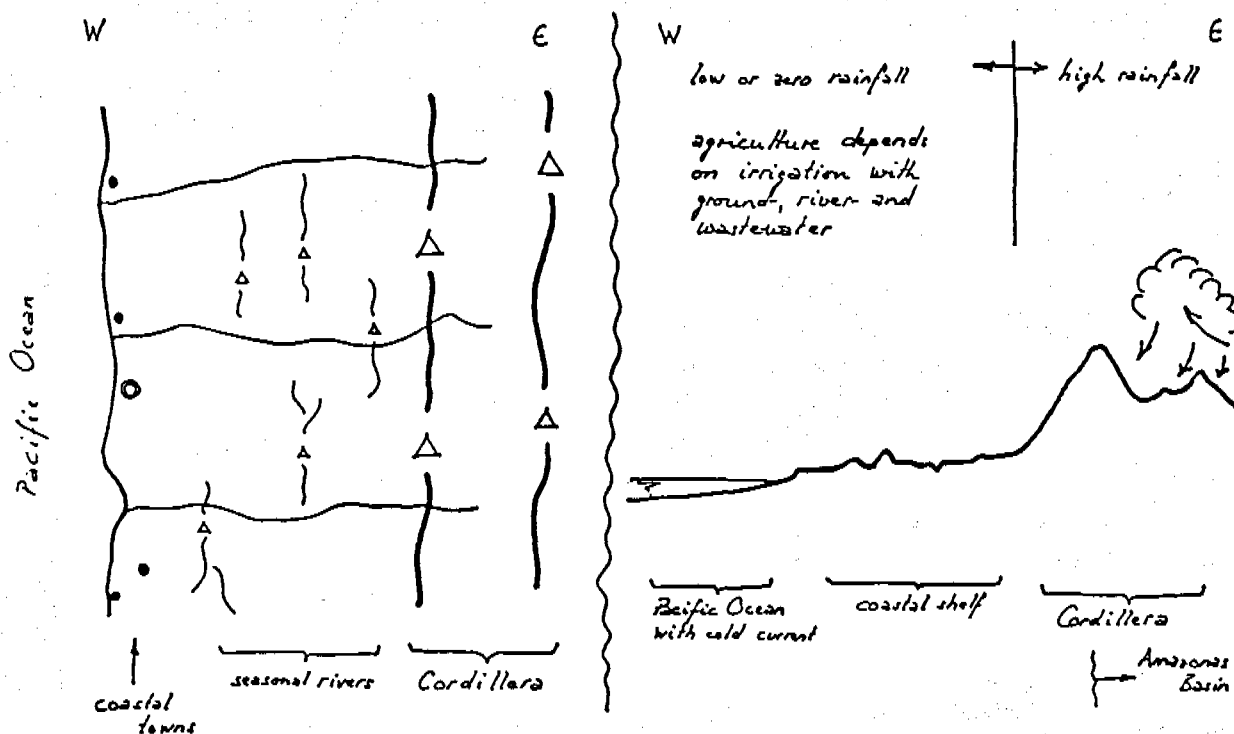 W
E
Pacific Ocean
coastal
towns
seasonal rivers
Cordillera
W
E
low or zero rainfall
high rainfall
agriculture depends
on irrigation with
ground-, river- and
wastewater
Pacific Ocean
with cold current
coastal shelf
Cordillera
Amazonas
Basin